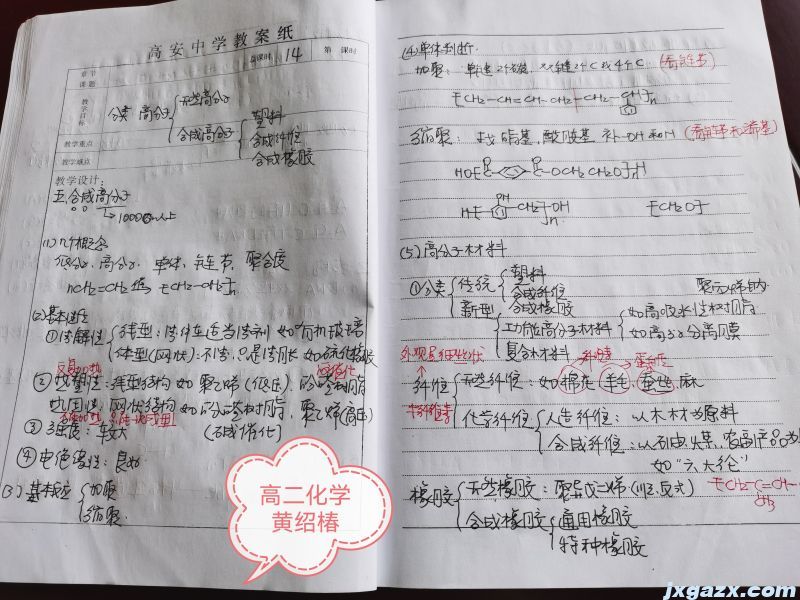 高安中学教案纸
章节
课题
备课时 14 第 课时
教学目标
分类 高分子 天然高分子
合成高分子 塑料
合成纤维
合成橡胶
教学重点
教学难点
教学设计:
五、合成高分子
(1)几个概念
低分子, 高分子, 单体, 链节, 聚合度
nCH2=CH2 → [CH2-CH2]n
(2)基本性质
①溶解性 线型:
体型(网状):不溶,只是溶胀 如硫化橡胶
②热塑性:线型结构 如聚乙烯(低压),酚醛树脂
热固性:网状结构 如酚醛树脂,聚乙烯(高压)
③强度:较大
④电绝缘性:良好
(3)基本反应 加聚
缩聚
高二化学
黄绍椿
(4)单体判断
加聚: 单键2个碳, 双键2个C或4个C (看链节)
[CH2-CH=CH-CH2-CH2-CH]n
缩聚: 找酯基,酰胺基 补-OH和H
-OCH2CH2O]nH
[CH2O]
(5)高分子材料
①分类 传统 塑料
合成纤维
合成橡胶
新型 功能高分子材料 如高吸水性树脂
如高分子分离膜
复合材料
纤维 天然纤维:如棉花,羊毛,蚕丝,麻
纤维素
蛋白质
化学纤维 人造纤维:以木材为原料
合成纤维:以石油煤,农副产品为
如“六大纶”
橡胶 天然橡胶:聚异戊二烯(顺,反式)
[CH2-C=CH-
CH3
合成橡胶 通用橡胶
特种橡胶
jxgazx.com